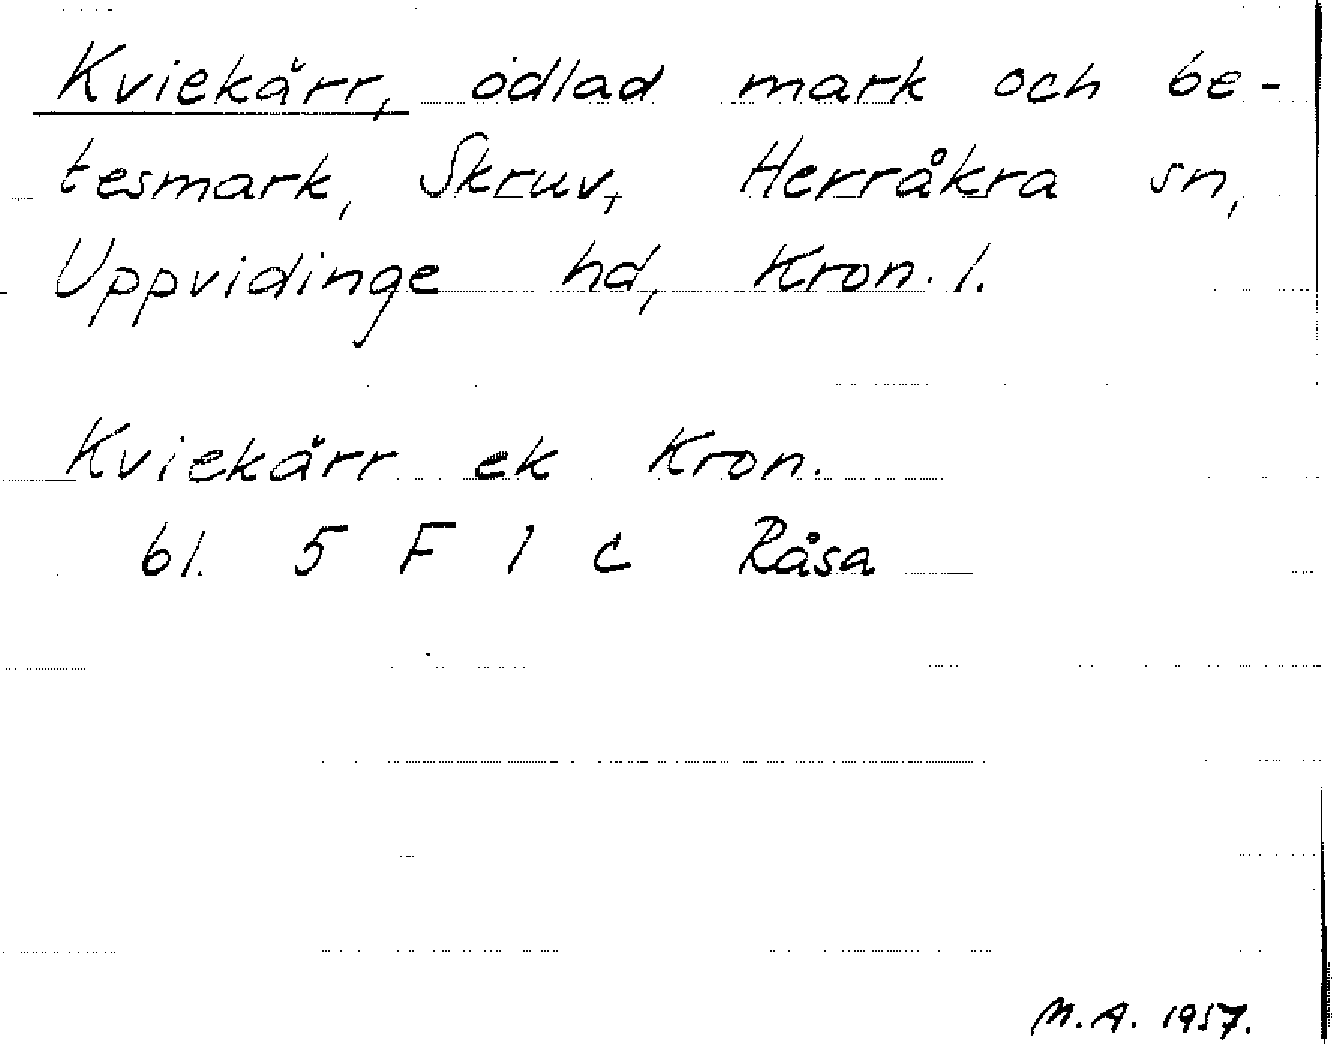 Kviekärr, odlad mark och be-
tesmark, Skruv, Herråkra sn,
Uppvidinge hd, Kron. l.
Kviekärr ek Kron.
bl. 5 F 1 c Råsa
M.A. 1957.